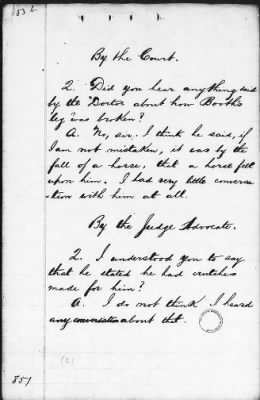 53 b
By the Court.
Q. Did you hear anything said
by the Doctor about how Booth's
leg was broken?
A. No, sir. I think he said, if
I am not mistaken, it was by the
fall of a horse, that a horse fell
upon him. I had very little conversa
-tion with him at all.
By the Judge Advocate.
Q. I understood you to say
that he stated he had crutches
made for him?
A. I do not think I heard
any conversation about that.
857